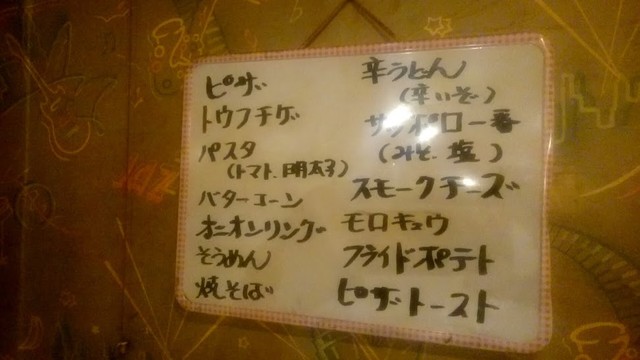 ピザ
トウフチゲ
パスタ
(トマト.明太子)
バターコーン
オニオンリング
そうめん
焼そば
辛うどん
(辛いぞ〜)
サッポロ一番
(みそ.塩)
スモークチーズ
モロキュウ
フライドポテト
ピザトースト